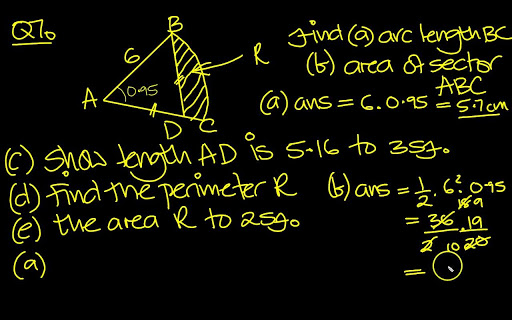 Q7.
B
6
R
A
0.95
D C
Find (a) arc length BC
(b) area of sector
ABC
(a) ans = 6.0.95 = 5.7cm
(c) Show length AD is 5.16 to 3sf.
(d) Find the perimeter R
(e) the area R to 2sf.
(a)
(b) ans = 1/2 . 6². 0.95
= 36 . 19
2 10 20
=